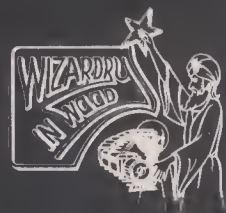 WIZARDRY
IN WOOD